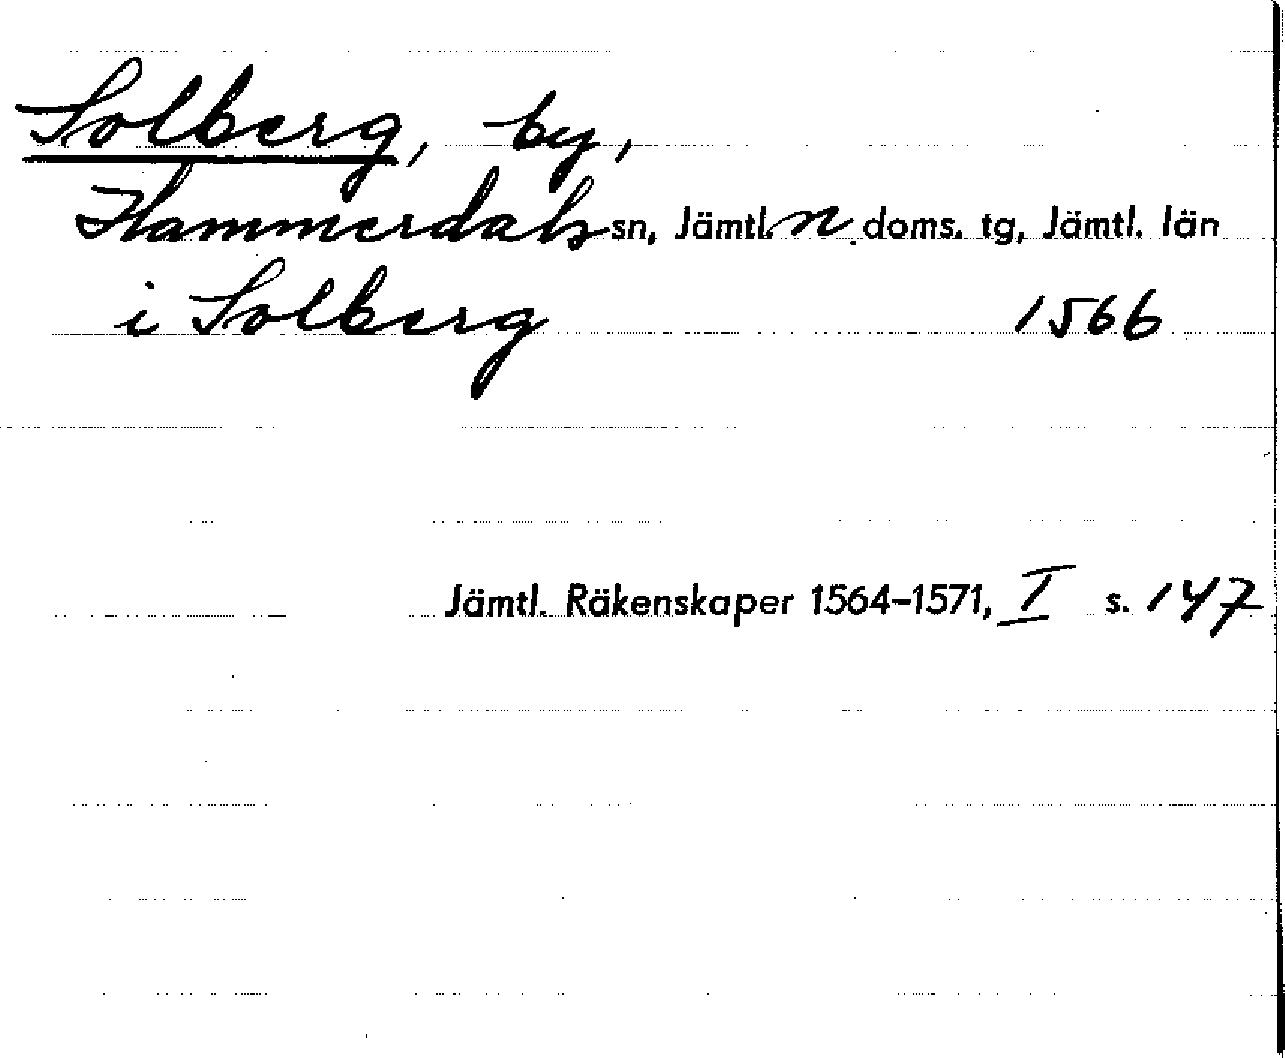 Solberg, by,
Hammerdals sn, Jämtl. n. doms. tg, Jämtl. län
i Solberg 1566
Jämtl. Räkenskaper 1564-1571, I s. 147